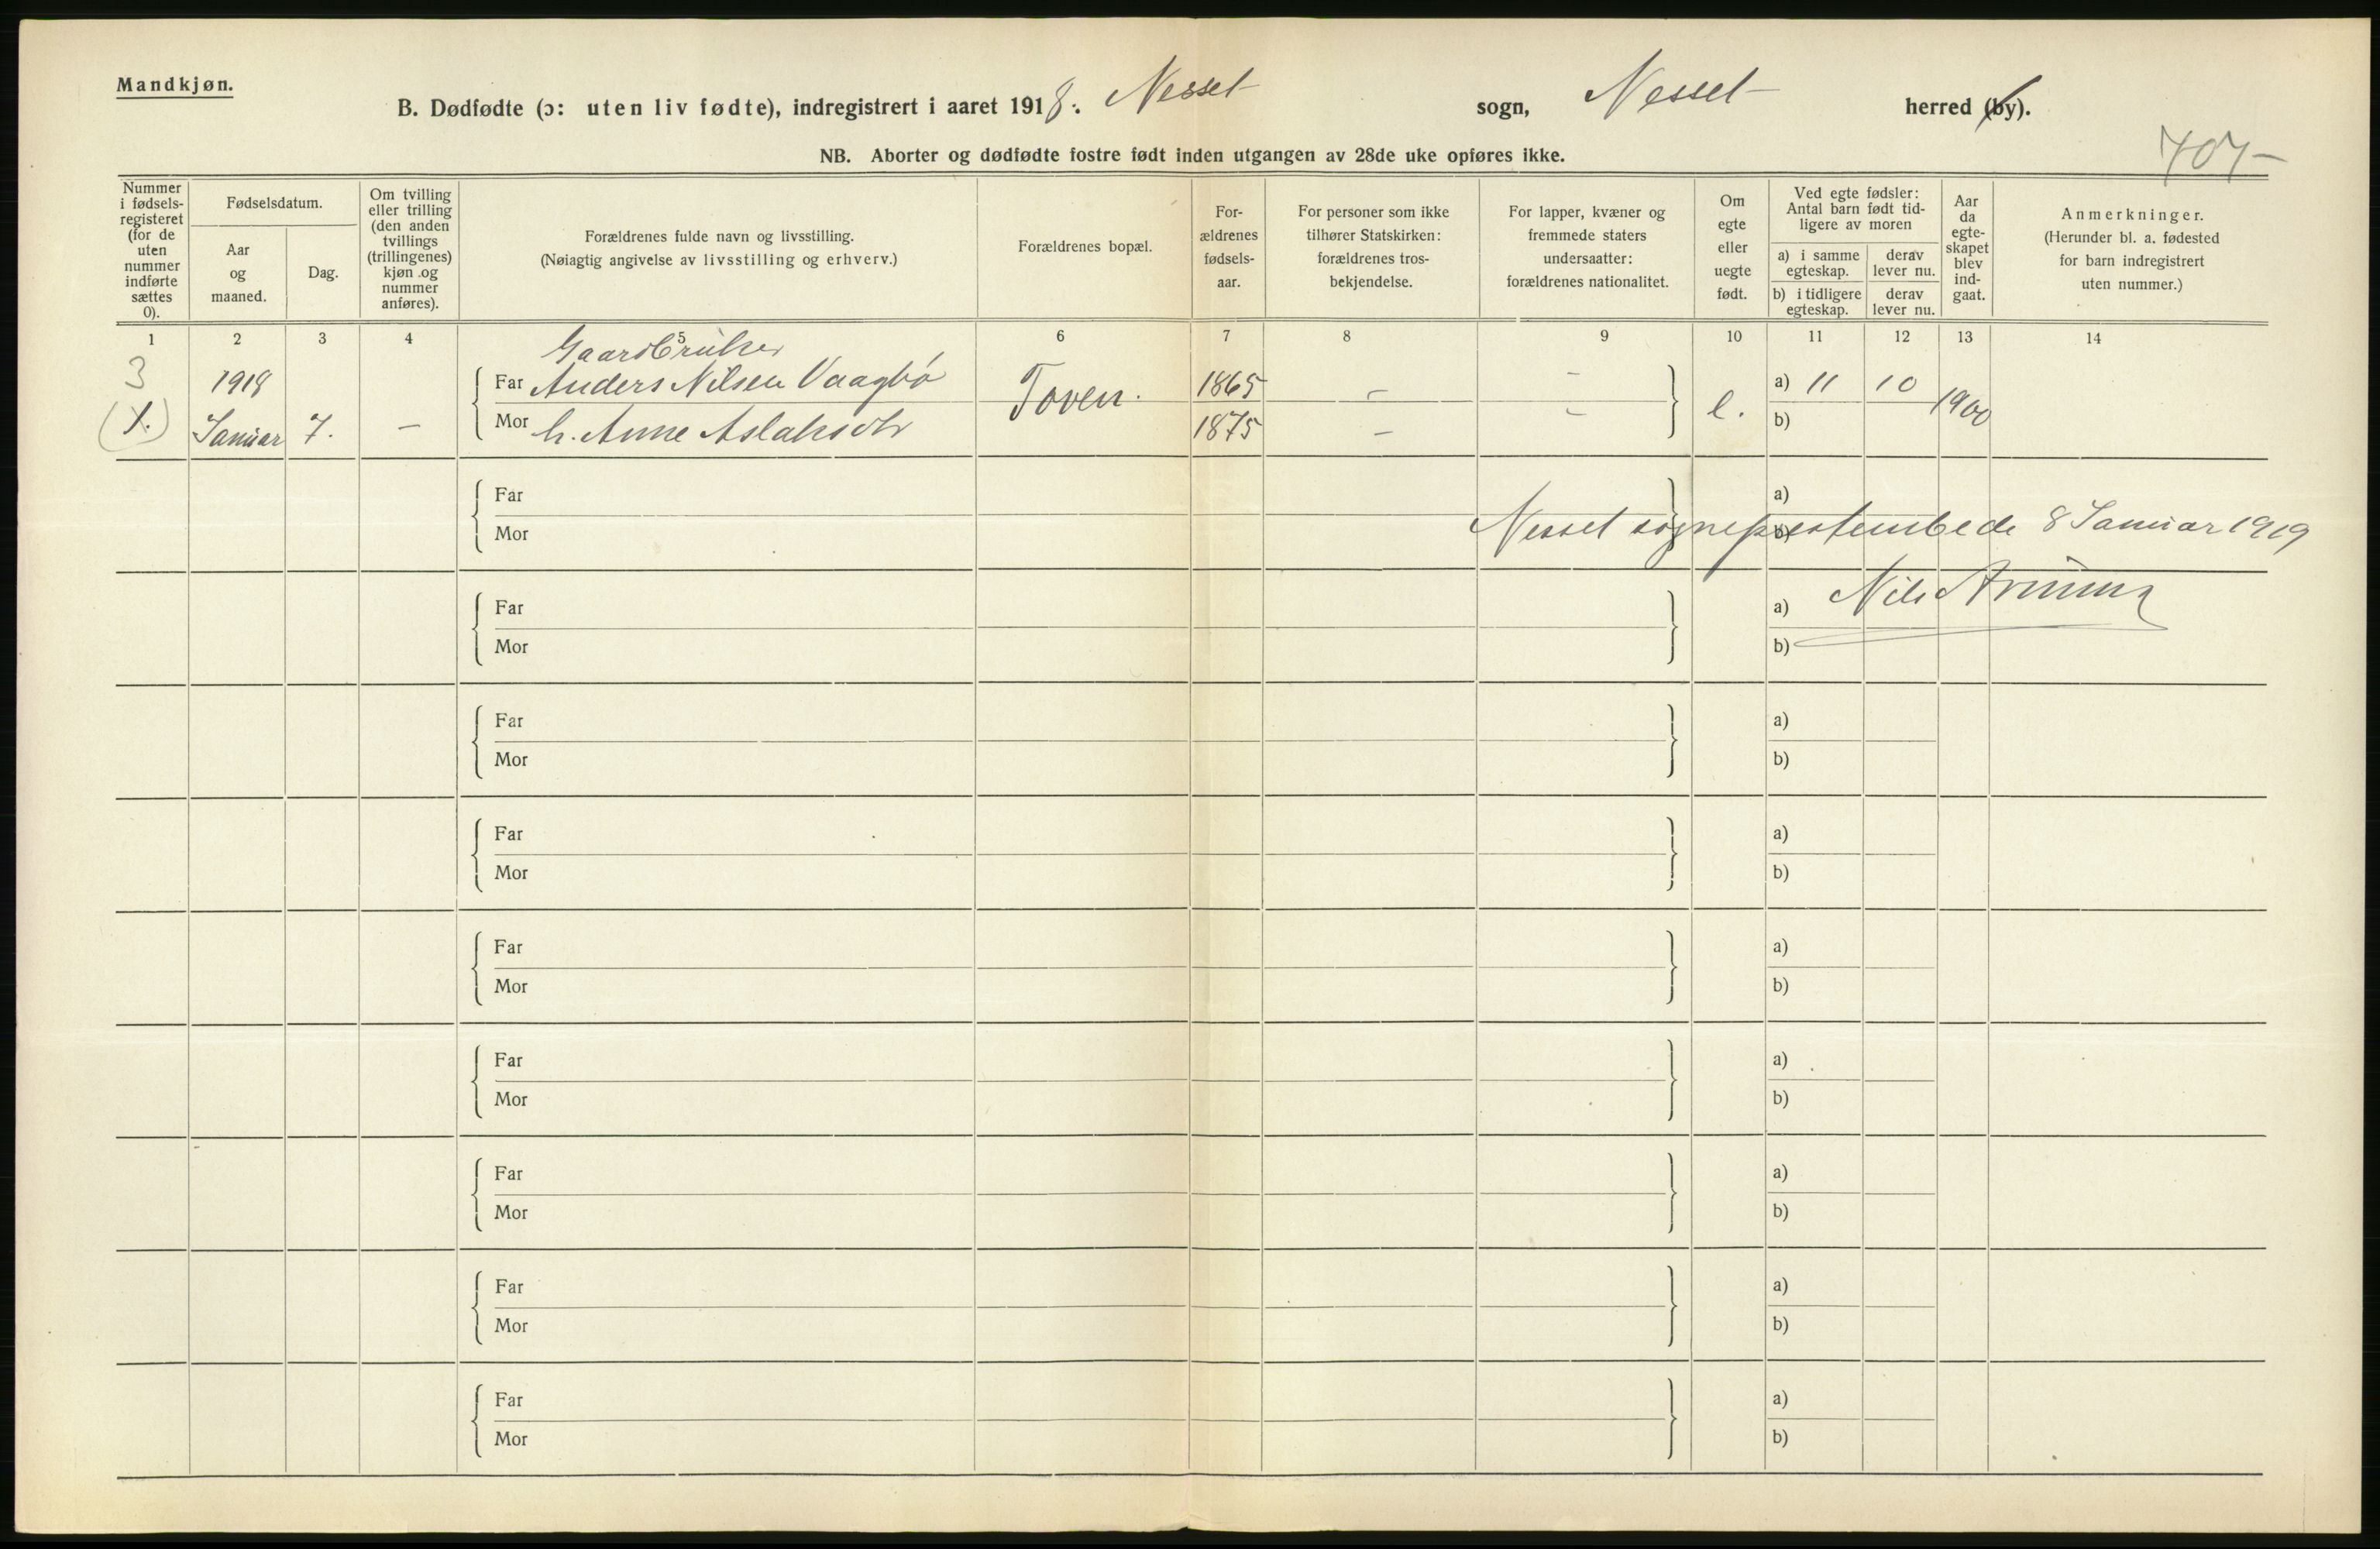 Mandkjøn.
B. Dødfødte (ɔ: uten liv fødte), indregistrert i aaret 1918. Nesset sogn, Nesset herred (by).
NB. Aborter og dødfødte fostre født inden utgangen av 28de uke opføres ikke.
707-
Nummer i fødsels-registeret (for de uten nummer indførte sættes 0).
Fødselsdatum.
Aar og maaned.
Dag.
Om tvilling eller trilling (den anden tvillings (trillingenes) kjøn og nummer anføres).
Forældrenes fulde navn og livsstilling.
(Nøiagtig angivelse av livsstilling og erhverv.)
Forældrenes bopæl.
For-ældrenes fødsels-aar.
For personer som ikke tilhører Statskirken: forældrenes tros-bekjendelse.
For lapper, kvæner og fremmede staters undersaatter: forældrenes nationalitet.
Om egte eller uegte født.
Ved egte fødsler: Antal barn født tid-ligere av moren
a) i samme egteskap.
derav lever nu.
b) i tidligere egteskap.
derav lever nu.
Aar da egte-skapet blev ind-gaat.
Anmerkninger.
(Herunder bl. a. fødested for barn indregistrert uten nummer.)
1 2 3 4 5 6 7 8 9 10 11 12 13 14
3
(1.)
1918
Januar 7. –
Gaardbruker
Far Anders Nilsen Vaagbø
Mor h. Anne Aslaksdtr
Toven.
1865 – –
1875 – –
e.
a) 11 10
b)
1900
Far
Mor
a)
b)
Nesset sogneprestembede 8 Januar 1919
Nils
Far
Mor
a)
b)
Far
Mor
a)
b)
Far
Mor
a)
b)
Far
Mor
a)
b)
Far
Mor
a)
b)
Far
Mor
a)
b)
Far
Mor
a)
b)
Far
Mor
a)
b)